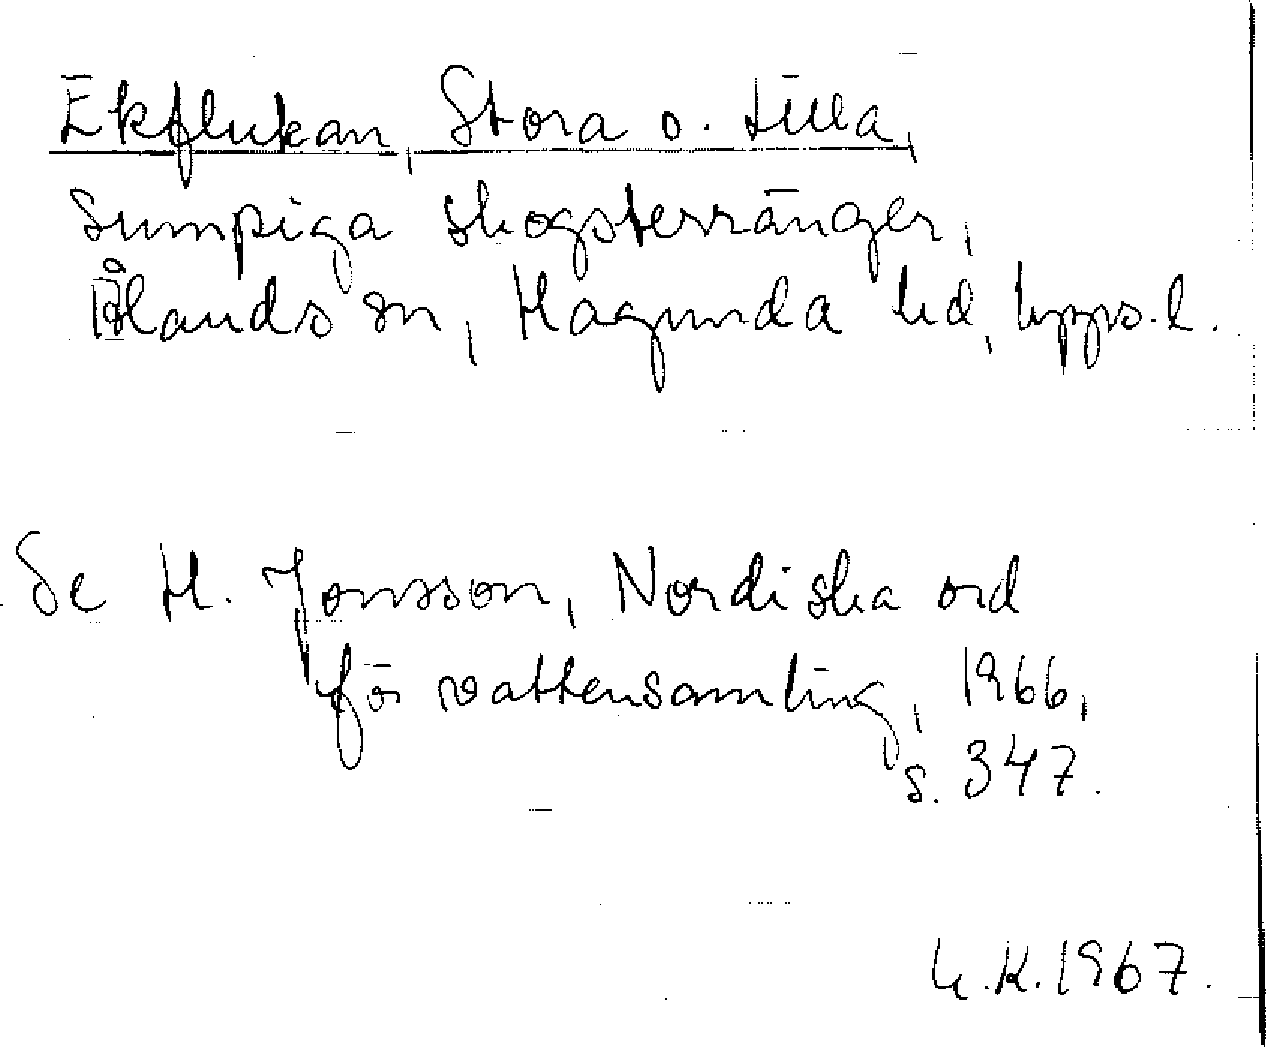 Ekflukan, Stora o. Lilla,
sumpiga skogsterränger,
Ålands sn, Hagunda hd, Upps. l.
Se H. Jonsson, Nordiska ord
för vattensamling, 1966,
s. 347.
U.K. 1967.